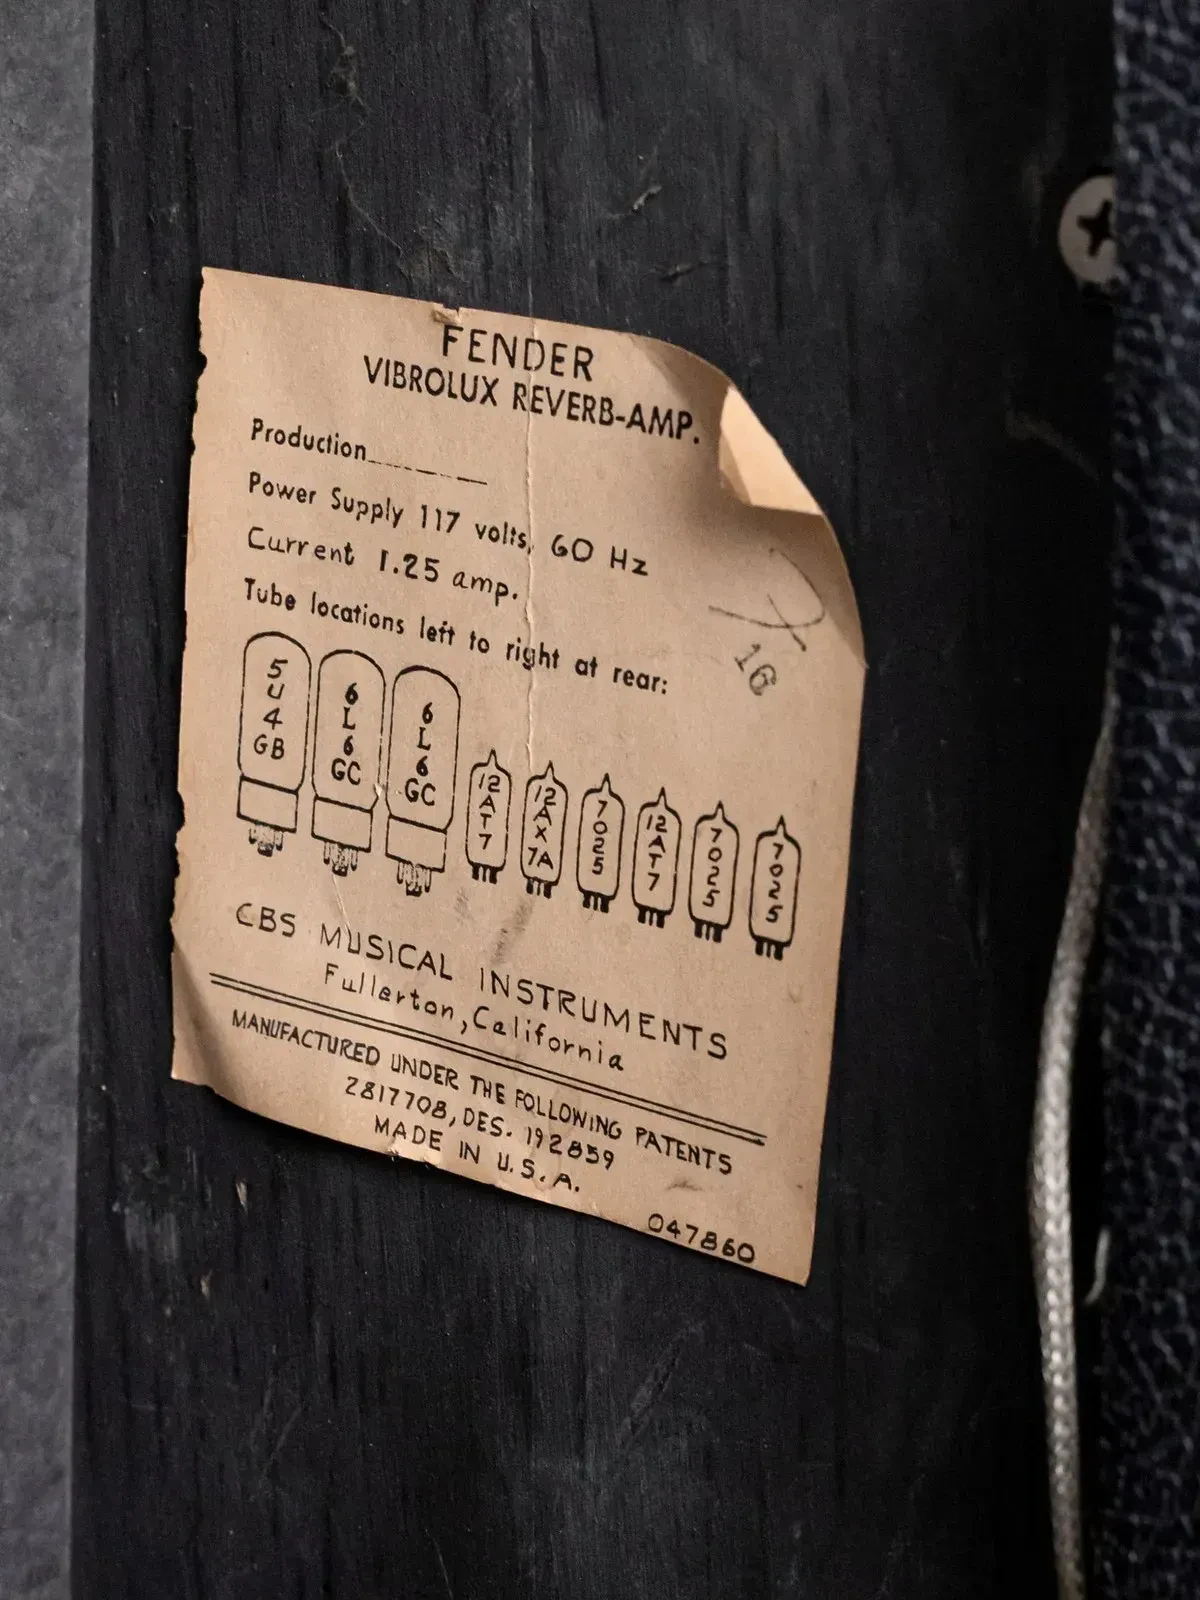 FENDER
VIBROLUX REVERB-AMP.
Production
Power Supply 117 volts, 60 Hz
Current 1.25 amp.
Tube locations left to right at rear:
16
5U4GB 6L6GC 6L6GC 12AT7 12AX7A 7025 12AT7 7025 7025
CBS MUSICAL INSTRUMENTS
Fullerton, California
MANUFACTURED UNDER THE FOLLOWING PATENTS
2817708, DES. 192859
MADE IN U.S.A.
047860